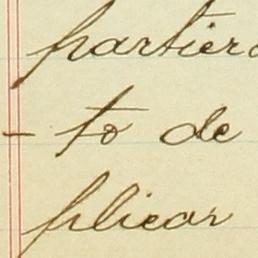 partiero
- to de
plicar